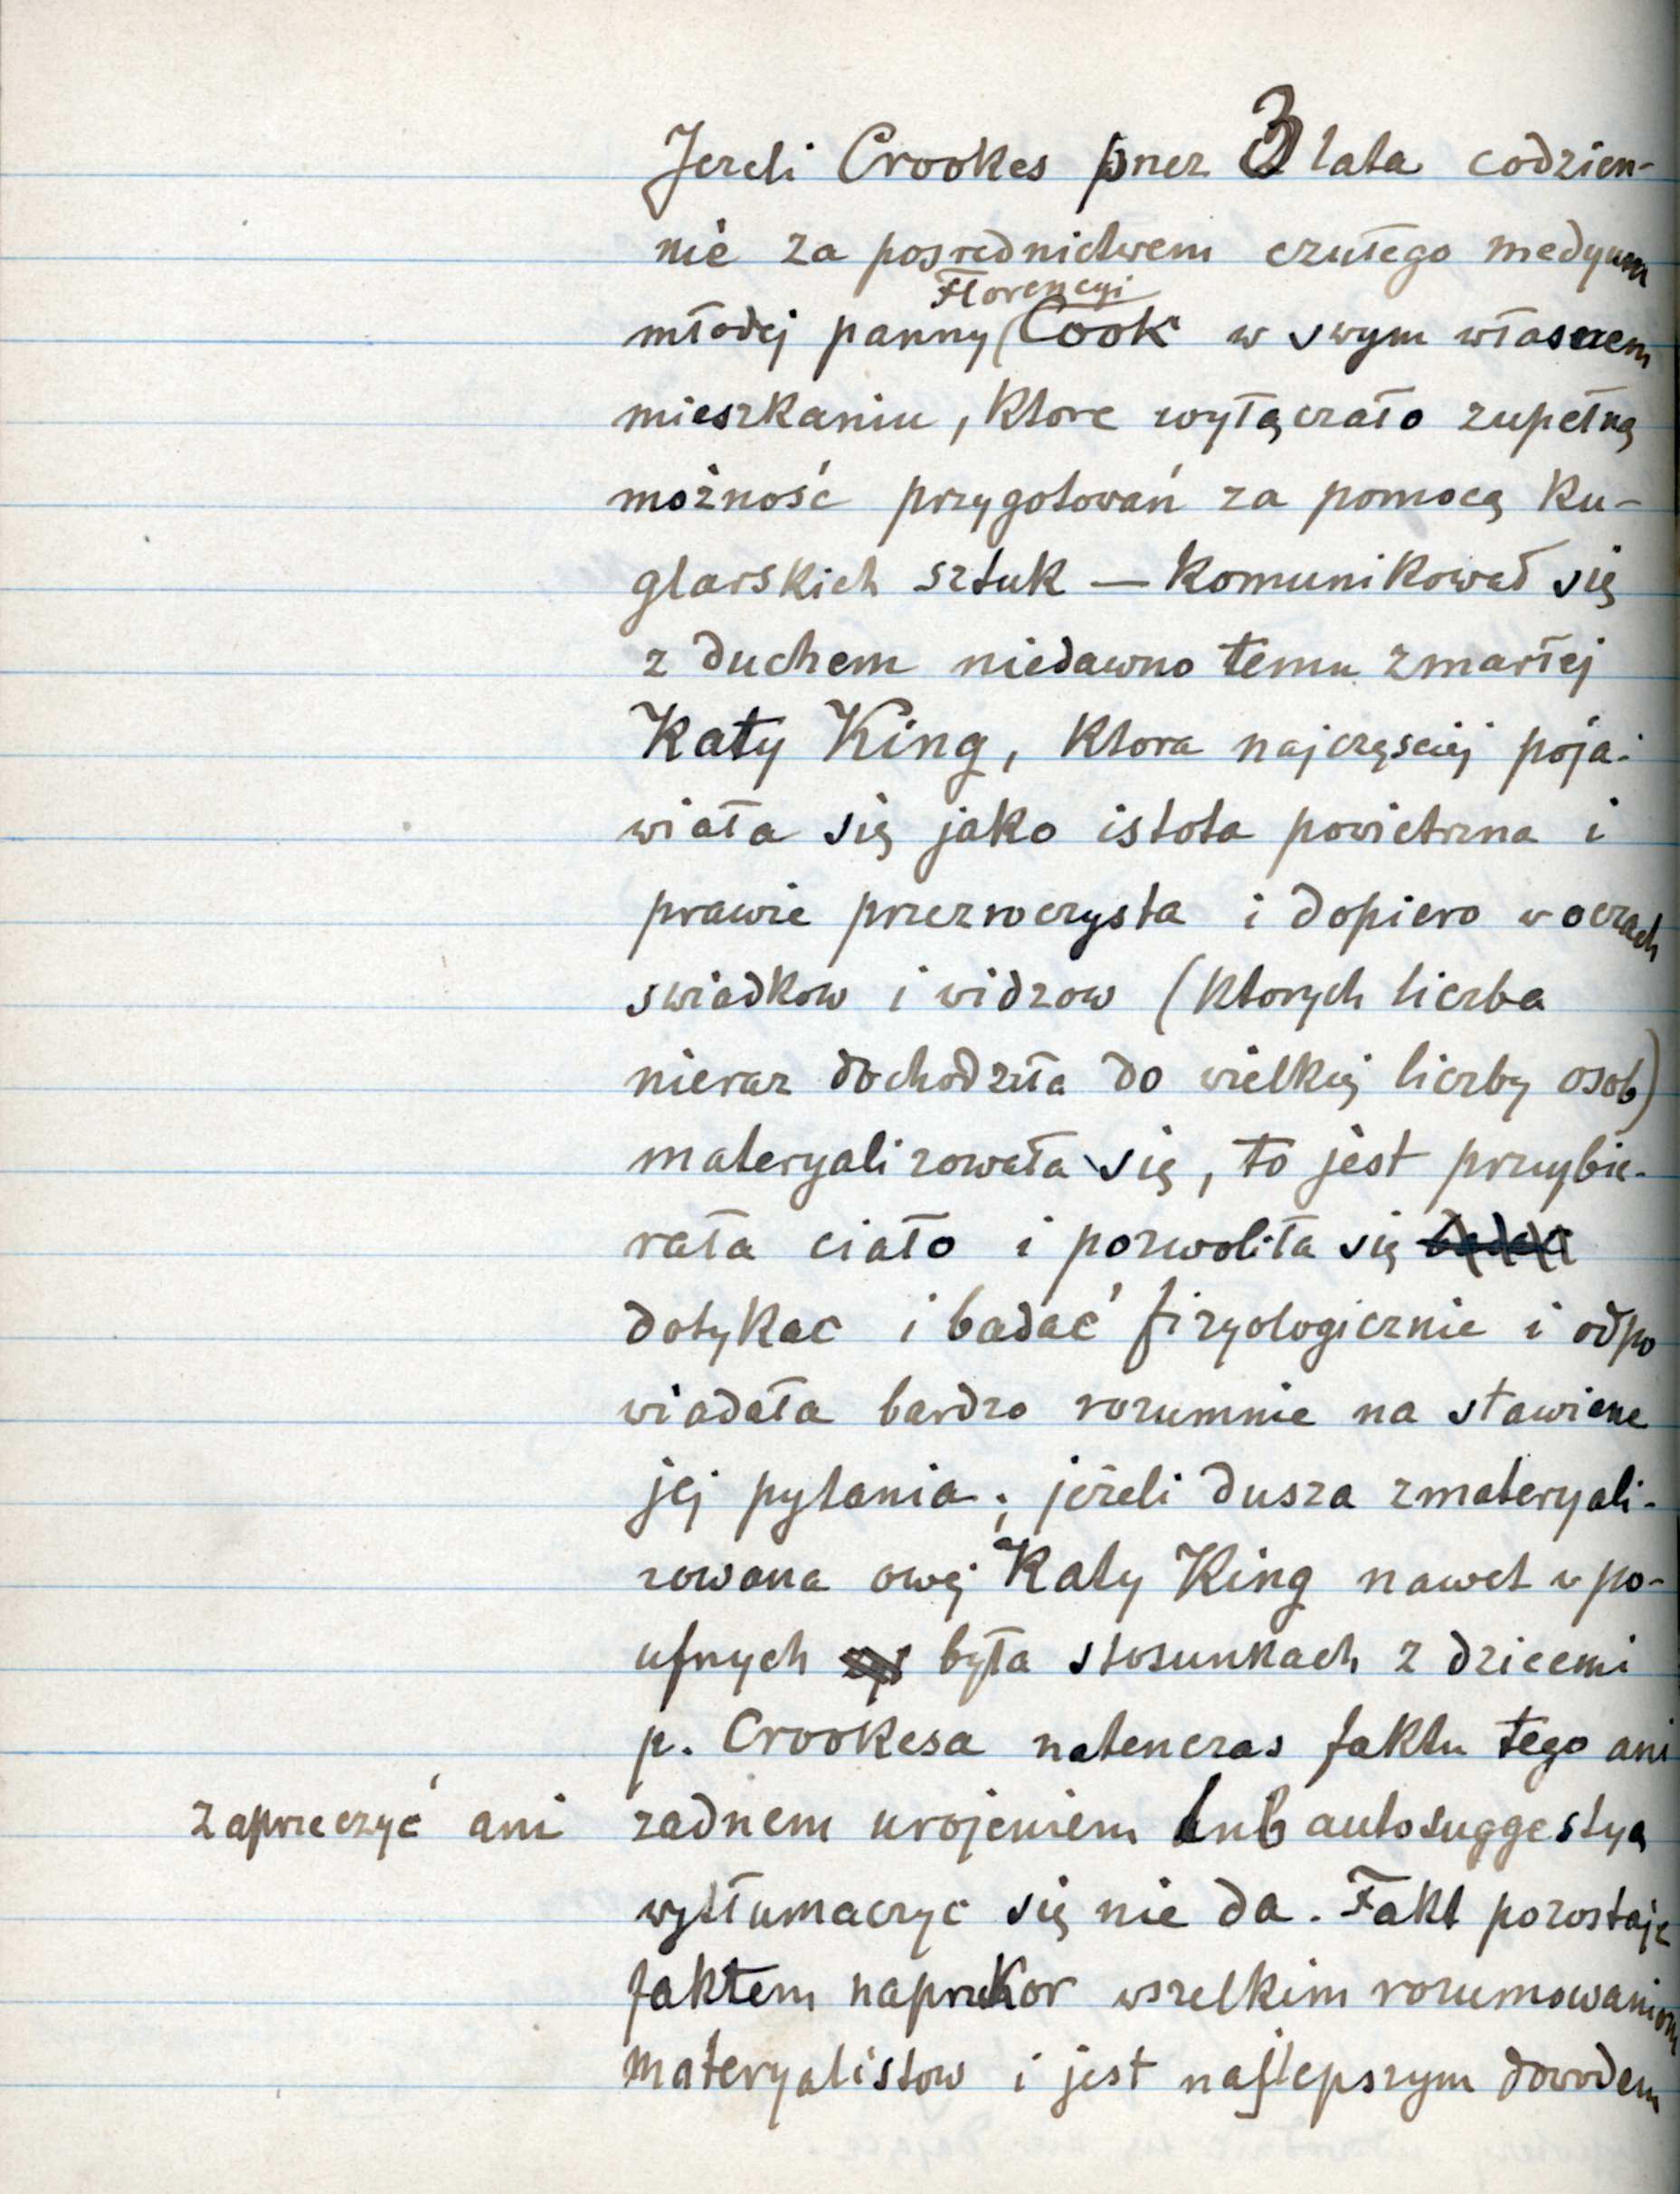 Jezeli Crookes przez 3 lata codzien-
nie za posrednictwem czułego medyum
Florencyi
młodej panny (Cook w swym własnem
mieszkaniu, ktore wyłączało zupełną
możność przygotowań za pomocą ku-
glarskich sztuk — komunikował się
z duchem niedawno temu zmarłej
Katy King, ktora najczęsciej poja-
wiała się jako istota powietrzna i
prawie przezroczysta i dopiero w oczach
swiadkow i widzow (ktorych liczba
nieraz dochodziła do wielkiej liczby osob)
materyalizowała się, to jest przybie-
rała ciało i pozwoliła się
dotykac i badać fizyologicznie i odpo
wiadała bardzo rozumnie na stawiane
jej pytania; jeżeli dusza zmateryali-
zowana owej Katy King nawet w po-
ufnych była stosunkach z dziecmi
p. Crookesa natenczas faktu tego ani
zaprzeczyć ani zadnem urojeniem lub autosuggestyą
wytłumaczyc się nie da. Fakt pozostaje
faktem naprzekor wszelkim rozumowaniom
materyalistow i jest najlepszym dowodem